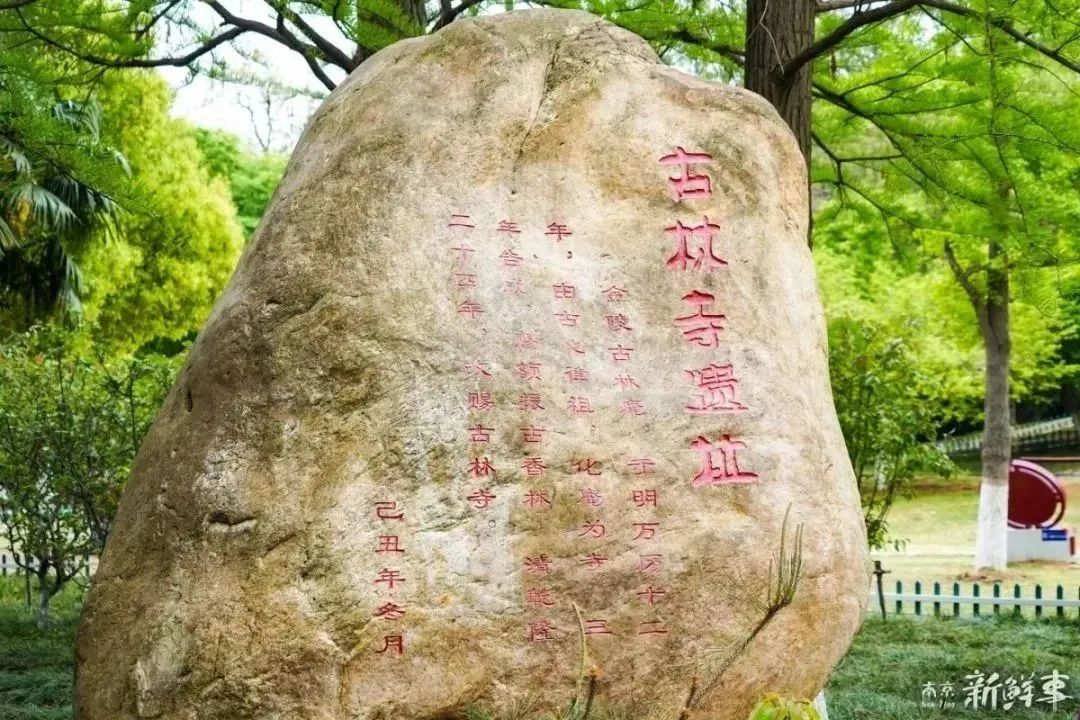 古林寺遗址
金陵古林庵 于明万历十二
年，由古心律祖，化庵为寺 三
年告成 额振古香林 清乾隆
二十四年，改赐古林寺。
己丑年冬月
南京 新鲜事
Nan Jing